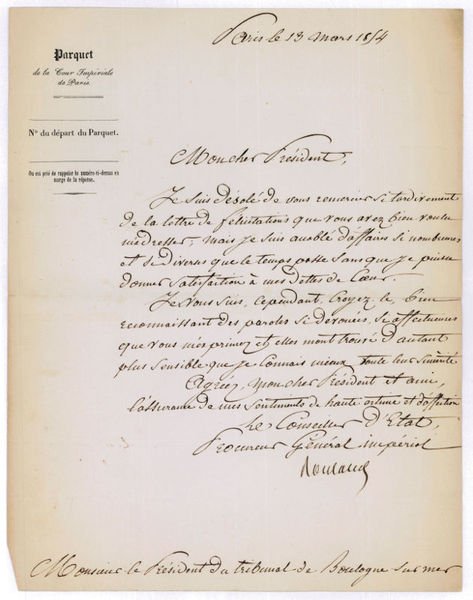 Paris le 13 mars 1854
Parquet
de la Cour Impériale
de Paris.
N° du départ du Parquet.
On est prié de rappeler le numéro ci-dessus en
marge de la réponse.
Mon cher Président,
Je suis désolé de vous remercier si tardivement
de la lettre de félicitations que vous avez bien voulu
m'adresser, mais je suis accablé d'affaires si nombreuses
et si diverses que le temps passe sans que je puisse
donner satisfaction à mes dettes de Cœur.
Je vous suis, cependant, croyez le, bien
reconnaissant des paroles si dévouées, si affectueuses
que vous m'exprimez et elles m'ont trouvé d'autant
plus sensible que je connais mieux toute leur sincérité
Agréez, mon cher Président et ami,
l'assurance de mes sentiments de haute estime et d'affection
Le Conseiller d'Etat,
Procureur Général impérial
Rouland
Monsieur le Président du tribunal de Boulogne sur mer